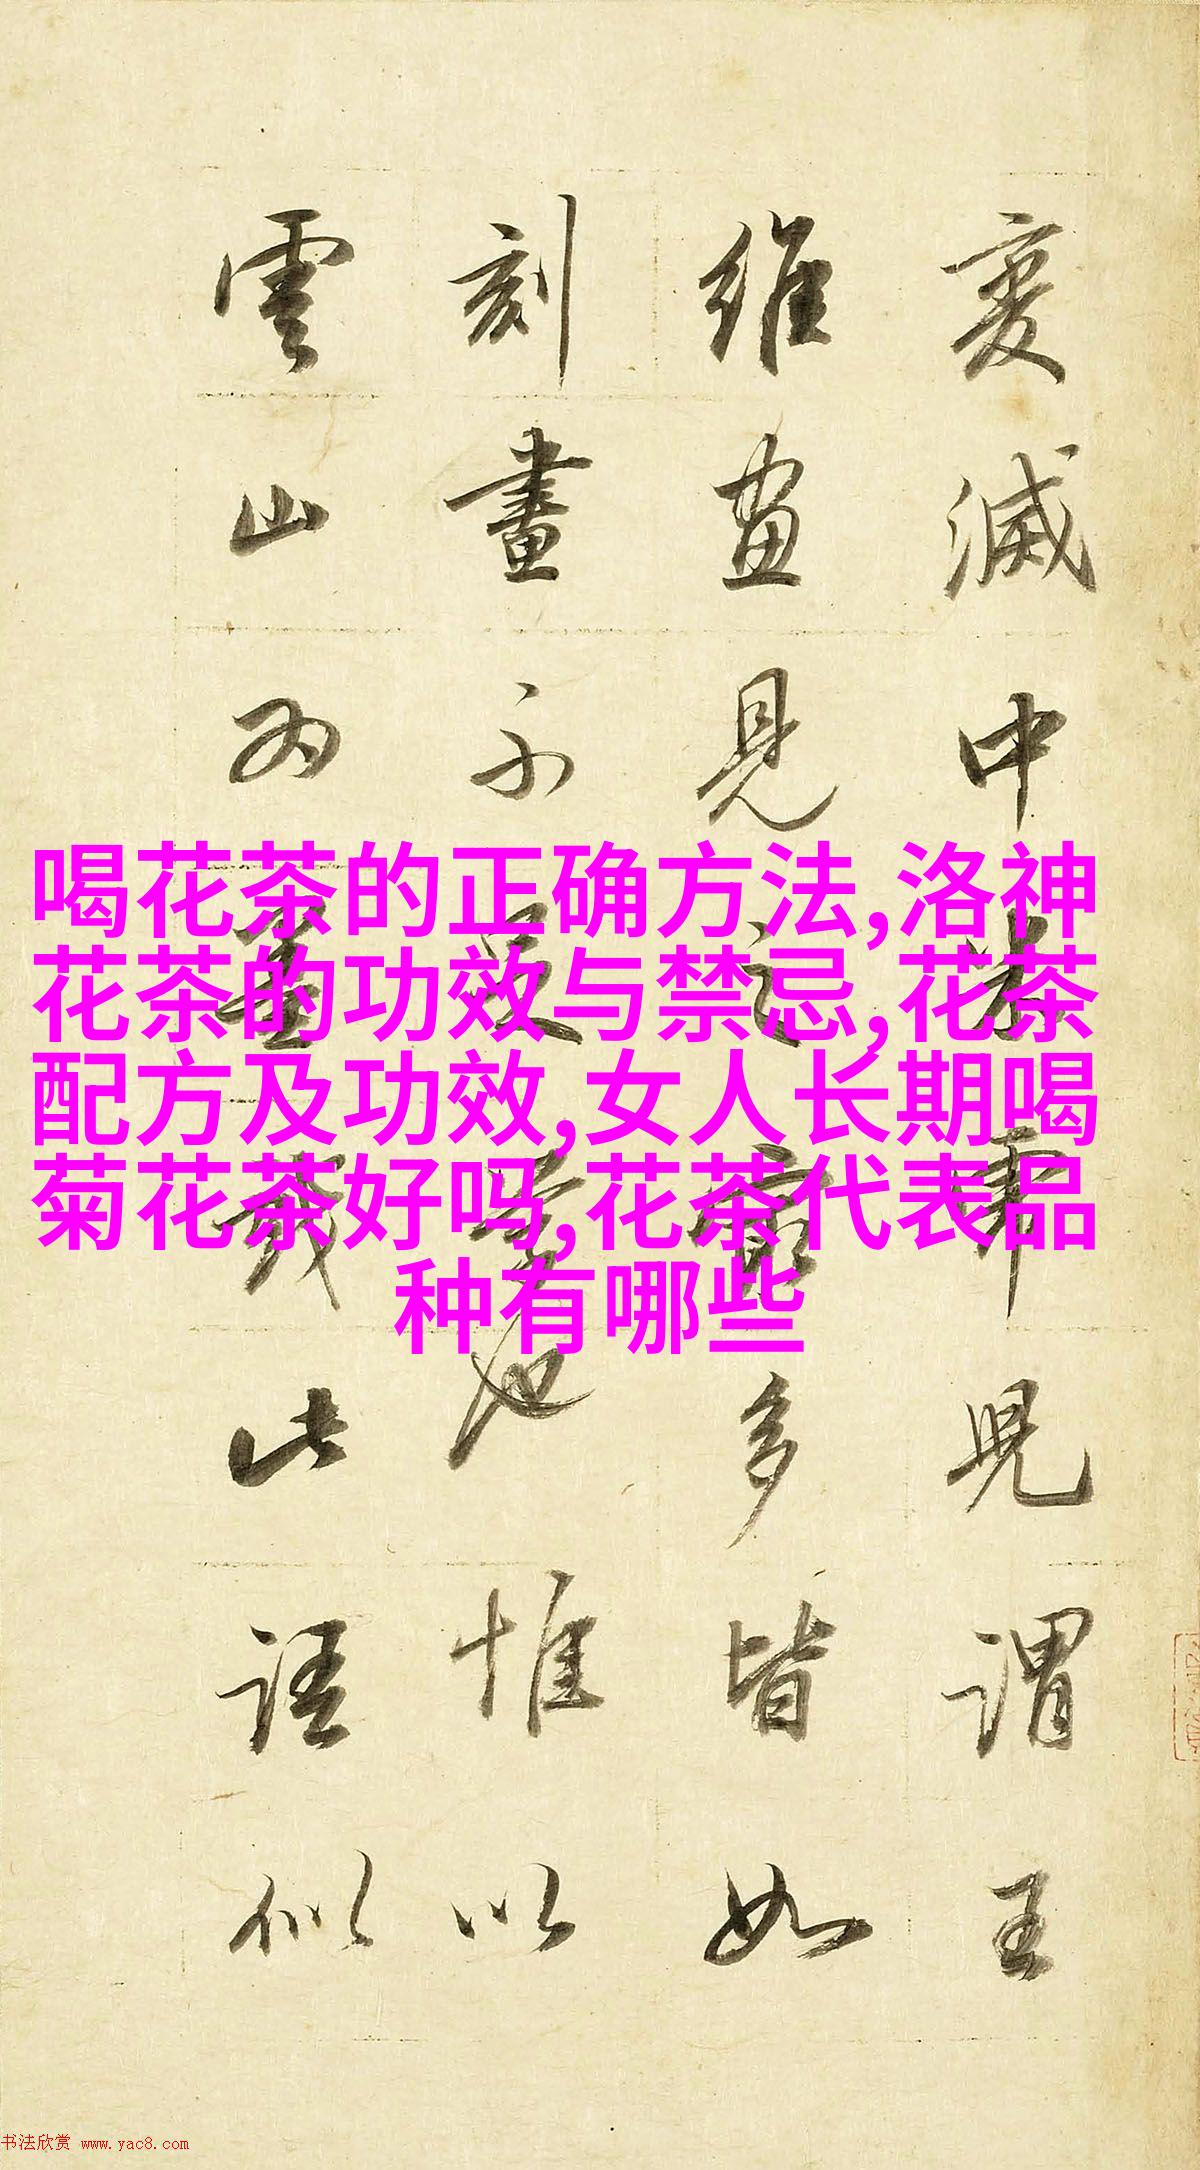 變滅中見謂王
維畫見之最多皆如
刻畫不足學也惟以
雲山为墨戲此語似
喝花茶的正确方法,洛神
花茶的功效与禁忌,花茶
配方及功效,女人长期喝
菊花茶好吗,花茶代表品
种有哪些
书法欣赏 www.yac8.com